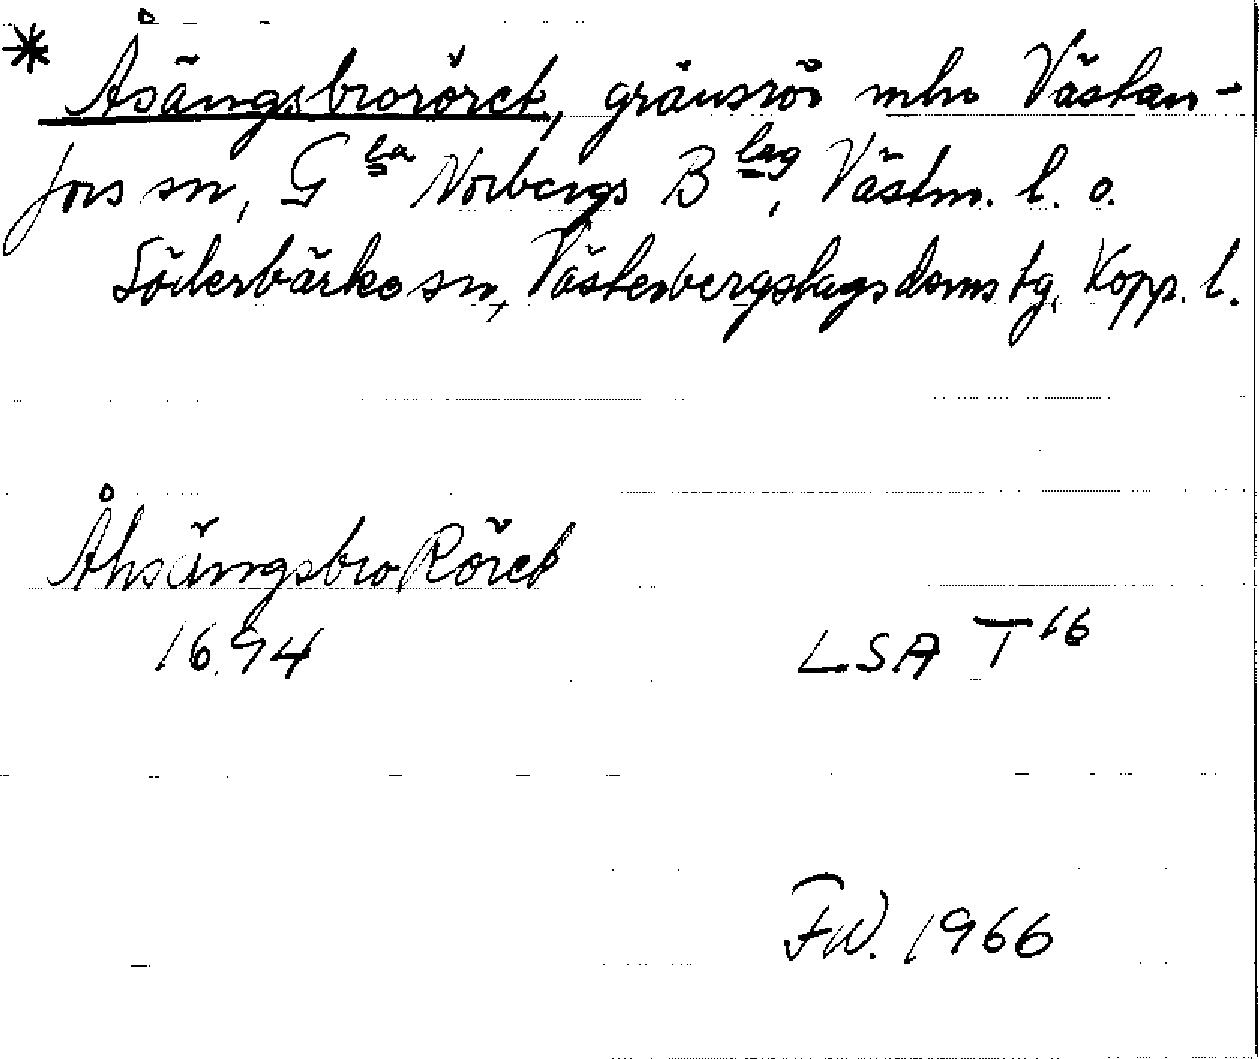 * Åsängsbroröret, gränsrör mln Västan-
fors sn, G la Norbergs B lag, Västm. l. o.
Söderbärke sn, Västerbergslags doms tg, Kopp. l.
ÅhsängsbroRöret
1694 LSA T 16
FW. 1966